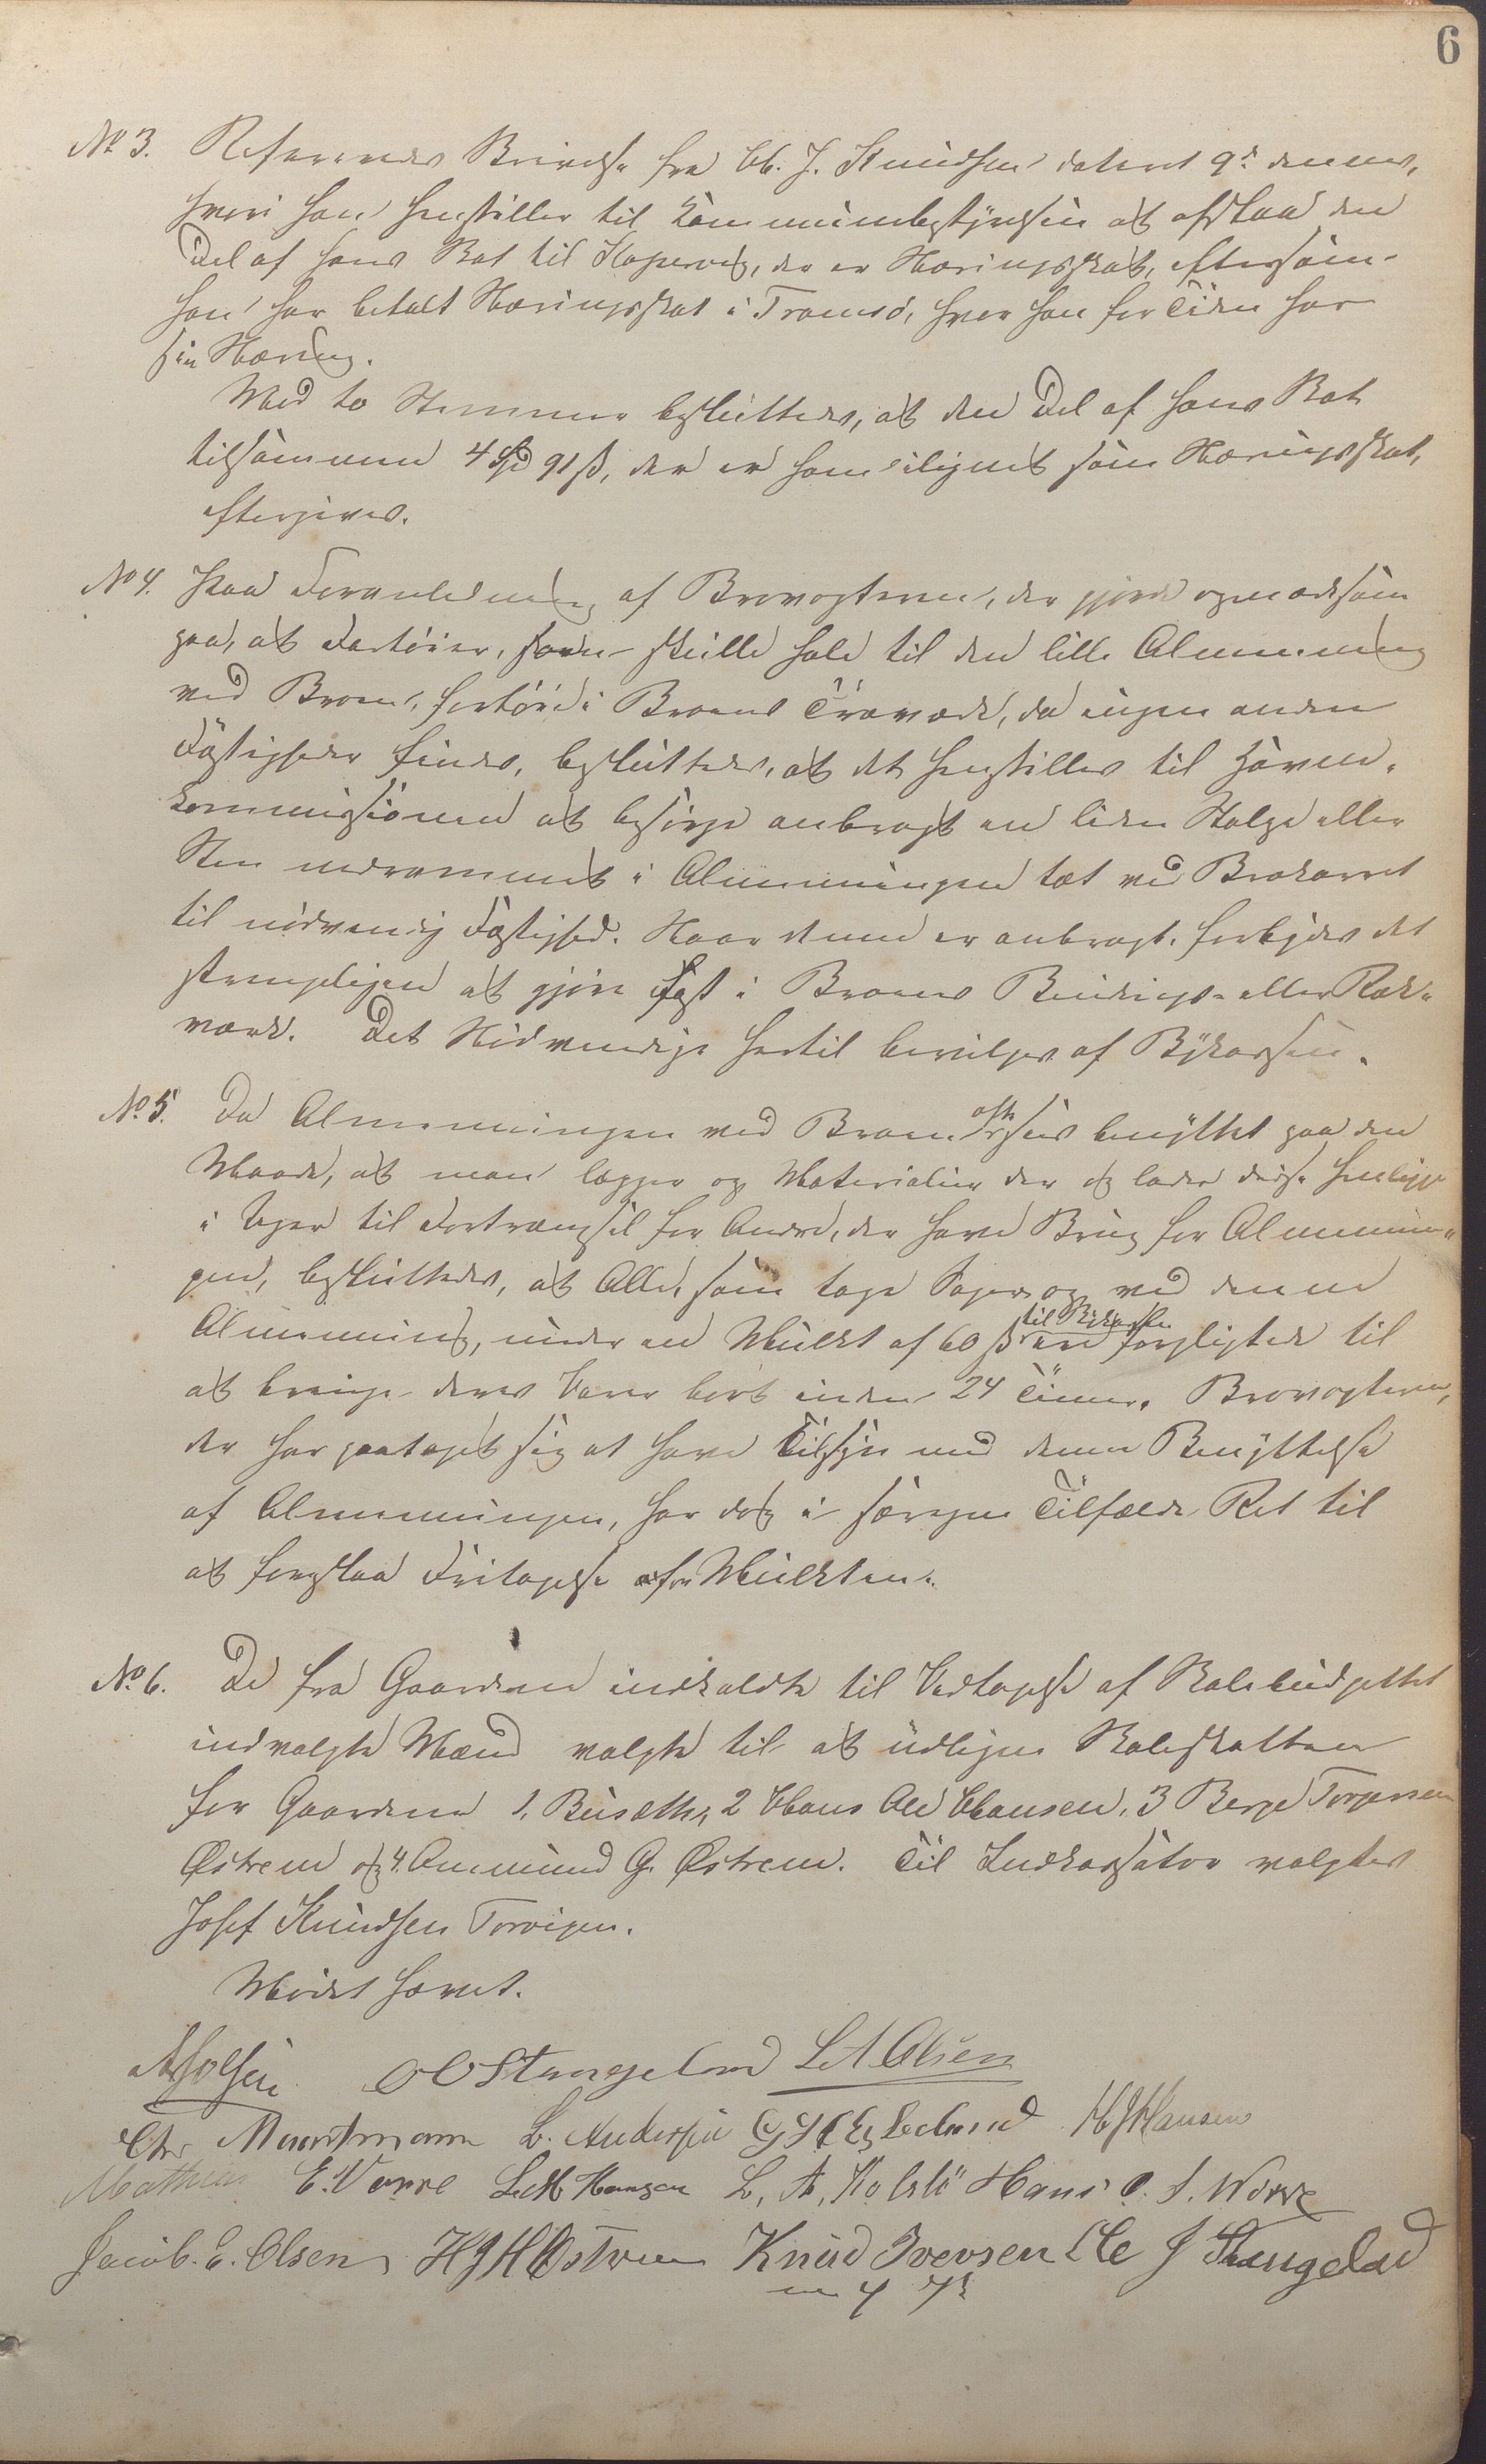 6
No 3. Refereredes Skrivelse fra Chr. J. Knudsen dateret 9de dennes,
hvori han henstiller til Kommunebestyrelsen at afslaa den
Del af hans Skat til Kopervig, der er Næringsskat, eftersom
han har betalt Næringsskat i Tromsø, hvor han for Tiden har
sin Næring.
Med to Stemmer besluttedes, at den Del af hans Skat
tilsammen 4 Spd 91 ß, der er ham ilignet som Næringsskat,
eftergives.
No 4. Paa Foranledning af Brovogteren, der gjorde opmærksom
paa, at Fartøier, som skulle hale til den lille Almenning
ved Broen, fortøie i Broens Træværk, da ingen anden
Fæstigheder findes, besluttedes, at det henstilles til Havne-
kommissionen at besørge anbragt en liden Stolpe eller
Sten nedrammet i Almenningen tæt ved Brokarret
til nødvendig Fæstighed. Naar denne er anbragt, forbydes det
strengeligen at gjøre fast i Broens Bindings- eller Ræk-
værk. Det Nødvendige hertil bevilges af Bykassen.
No 5. Da Almenningen ved Broen ofte sees benyttet paa den
Maade, at man lægger op Materialier der og lader disse henligge
i Uger til Fortrængsel for Andre, der have Brug for Almennin-
gen, besluttedes, at Alle, som tage Sager op ved denne
Almenning, under en Mulkt af 60 ß til Bykassen ere forpligtede til
at bringe deres Varer bort inden 24 Timer. Brovogteren,
der har paataget sig at have Tilsyn med denne Benyttelse
af Almenningen, har dog i særegne Tilfælde Ret til
at foreslaa Fritagelse for Mulkten.
No 6. De fra Gaardene indkaldte til Vedtagelse af Skolebudgettet
indvalgte Mænd valgte til at udligne Skoleskatten
for Gaardene 1, Buseth, 2 Claus Ole Clausen, 3 Berge Torgersen
Østrem og 4. Ommund G. Østrem. Til Indkassator valgtes
Josef Knudsen Torvigen.
Mødet hævet.
O O Stangeland L A Olsen
Chr Muntmann L. Andersen H J Hansen
Mathias E. Vorre L. M Hansen L. A. Kolstø Hans O. S. Vorre
Jacob. E. Olsen H J H Østrem Knud Iversen Ole J Stangeland
m p R